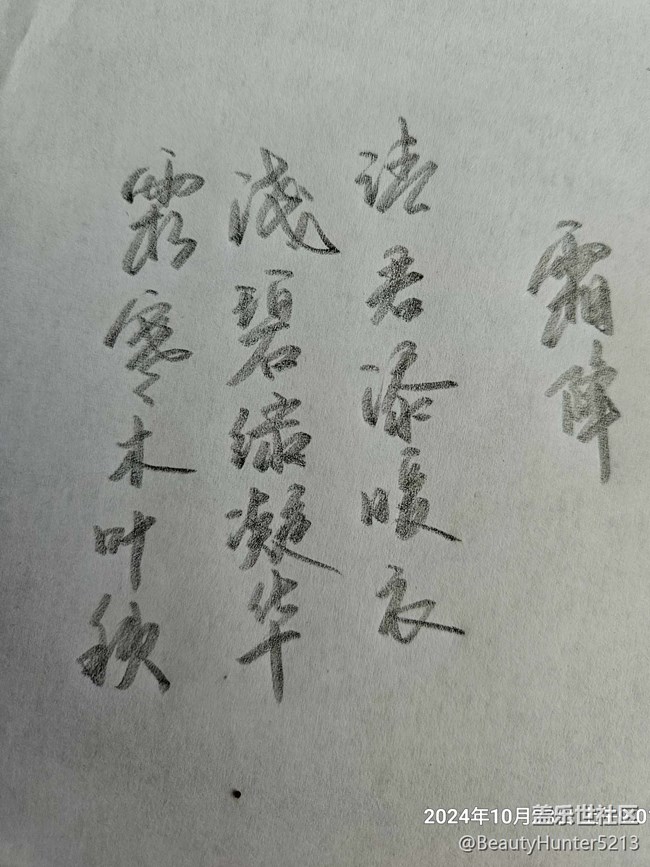 霜降
请君添暖衣
浅碧绿凝华
雾寒木叶
2024年10月
盖乐世社区
@BeautyHunter5213